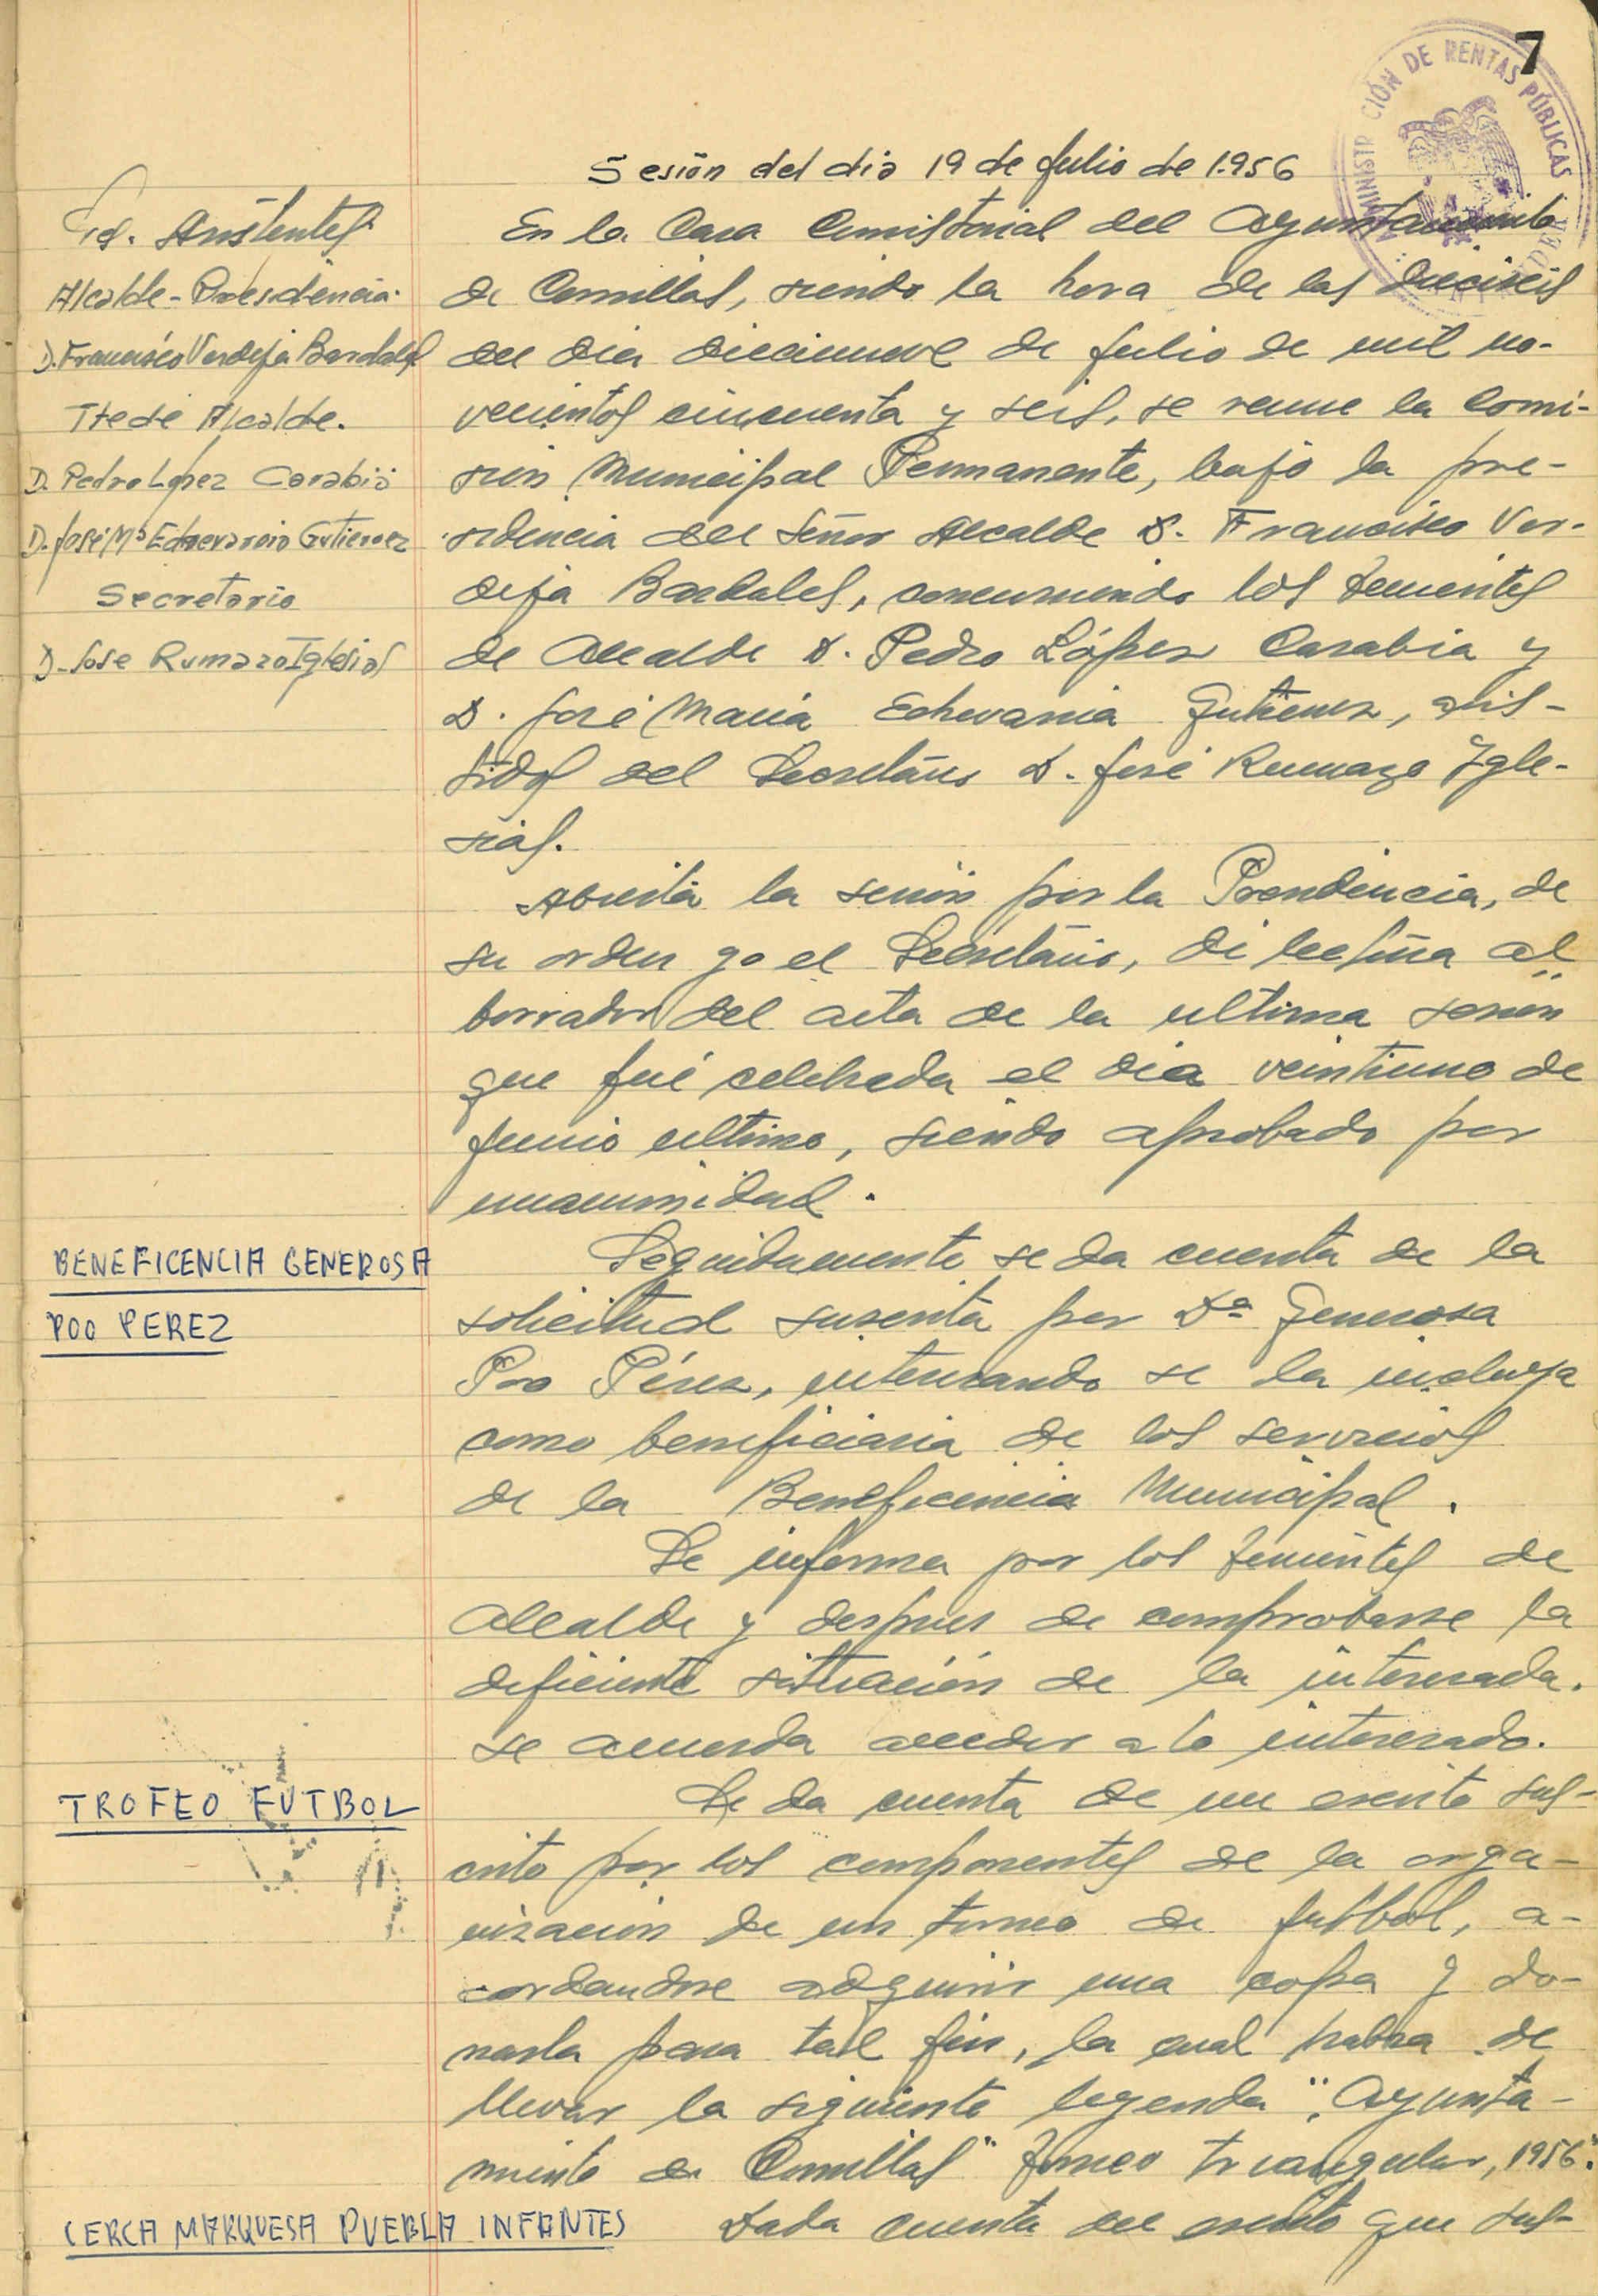 7
ADMINISTR CIÓN DE RENTAS PÚBLICAS
Sesión del dia 19 de Julio de 1.956
Sres. Asistentes
Alcalde-Presidencia.
D. Francisco Verdeja Bardales
Tte de Alcalde.
D. Pedro Lopez Carabia
D. José Mª Echevarria Gutierrez
Secretario
D. Jose Rumazo Iglesias
En la Casa Consistorial del Ayuntamiento
de Comillas, siendo la hora de las dieciseis
del dia diecinueve de julio de mil no-
vecientos cincuenta y seis, se reune la Comi-
sion Municipal Permanente, bajo la pre-
sidencia del Señor Alcalde D. Francisco Ver-
deja Bardales, concurriendo los Tenientes
de Alcalde D. Pedro López Carabia y
D. José María Echevarria Gutierrez, asis-
tidos del Secretario D. José Rumazo Igle-
sias.
Abierta la sesión por la Presidencia, de
su orden yo el Secretario, di lectura al
borrador del acta de la ultima sesion
que fué celebrada el dia veintiuno de
junio ultimo, siendo aprobado por
unanimidad.
BENEFICENCIA GENEROSA
POO PEREZ
Seguidamente se da cuenta de la
solicitud suscrita por Dª Generosa
Poo Pérez, interesando se la incluya
como beneficiaria de los servicios
de la Beneficencia Municipal.
Se informa por los Tenientes de
Alcalde y despues de comprobarse la
deficiente situación de la interesada.
se acuerda acceder a lo interesado.
TROFEO FUTBOL
Se da cuenta de un escrito sus-
crito por los componentes de la orga-
nizacion de un torneo de futbol, a-
cordandose adquirir una copa y do-
narla para tal fin, la cual habra de
llevar la siguiente legenda ", Ayunta-
miento de Comillas" Torneo triangular, 1956".
CERCA MARQUESA PUEBLA INFANTES
Dada cuenta del escrito que sus-